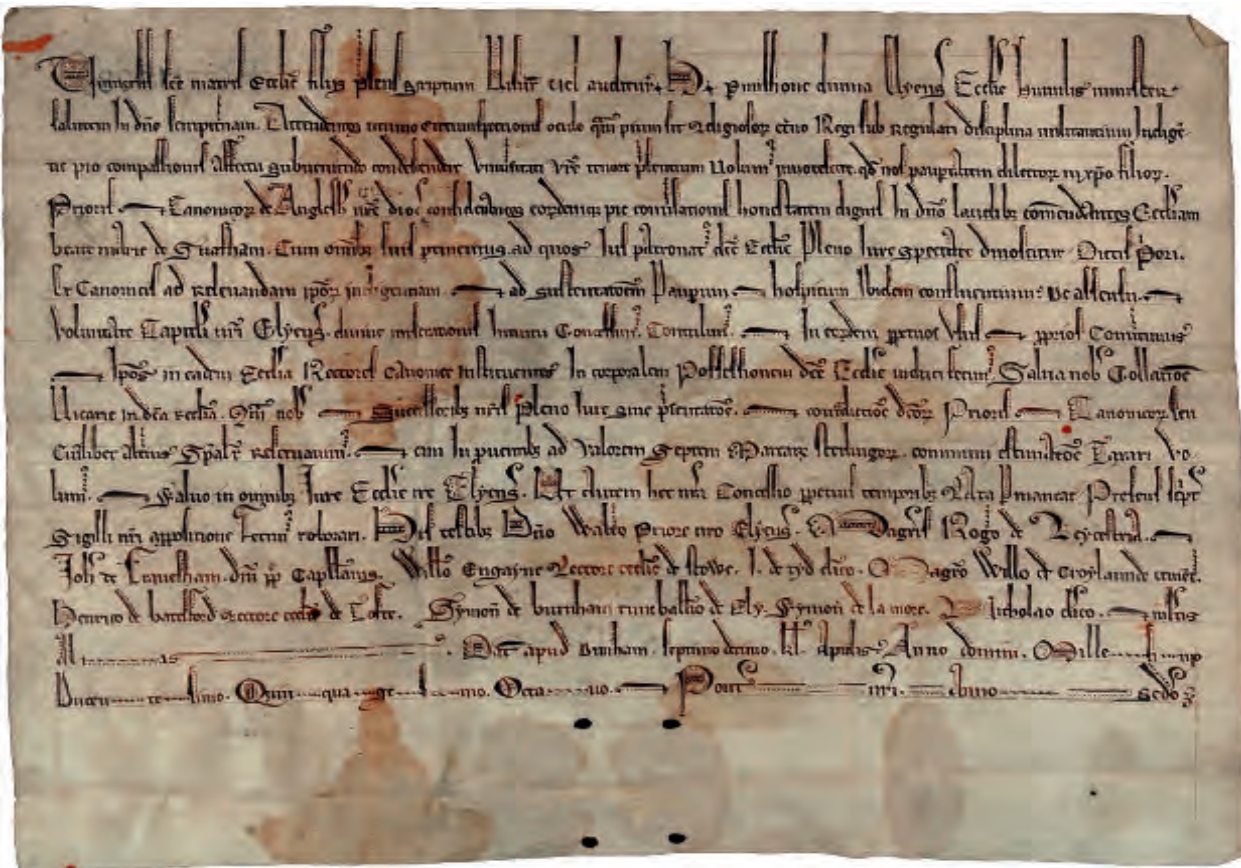 Uniuersis sce matris Ecclie filiis psens scriptum visur uel auditur H pmissione diuina Elyens Ecclie humilis minister
salutem in dno sempitnam. Attendentes circumspectionis oculo qm pium sit religiosor etno Regi sub regulari disciplina militantium indigen
tie pro compassionis affectu subueniendo condescendere Uniusitati vre tenore psentium Uolum innotescere qd nos paupertatem dilector in xpo filior.
Prioris Canonicor de Anglesh nre dioc eordemq honestatem dignis in dno laudib comendantes Eccliam
beate marie de Suafham. Cum omib suis ptinentiis ad quos ius patronat dce Ecclie Pleno iure spectare dinoscitur Dictis Pori.
Et Canonicis ad releuandam ipor indigentiam ad sustentatoem Pauperum hospitum ibidem confluentium: de assensu
voluntate Capituli nri Elyens. diuine intuitu Concessim. Contulim. In eordem ppetuos usus pprios
Ipos in eadem Ecclia Rectores Canonice instituentes In corporalem Possessionem dce Ecclie induci fecim. Salua nob Collatioe
Uicarie in dca ecclia. Qm nob Successorib nris Pleno iure sine psentatoe. dcor Prioris Canonicor seu
Cuiuslibet altius Spalr reseruauim. eam in puentib ad valorem septem Marcar sterlingor. communi estimatoe Taxari vo
lum. saluo in omnib Iure Ecclie nre Elyens. Ut autem hec nra Concessio ppetuis temporib Rata pmaneat Presens scpt
Sigilli nri appositione fecim roborari. Hiis testib Dno Waltro Priore nro Elyens. Magris Rogo de Leycestria.
Ioh de Capellanis. Willo Engayne Rectore ecclie de Stowe. I. de tyd clico. Magro Willo de Croylaunde
Henrico de rectore ecclie de Tofte. Symon de burnham tunc ballio de Ely. Symon de la more. Nicholao clico. multis
Aliis. Dat apud septimo decimo. kl Aprilis Anno domini. Millesimo
Ducentesimo. Quinquagesimo. Octauo. Pont nri. Anno scdo